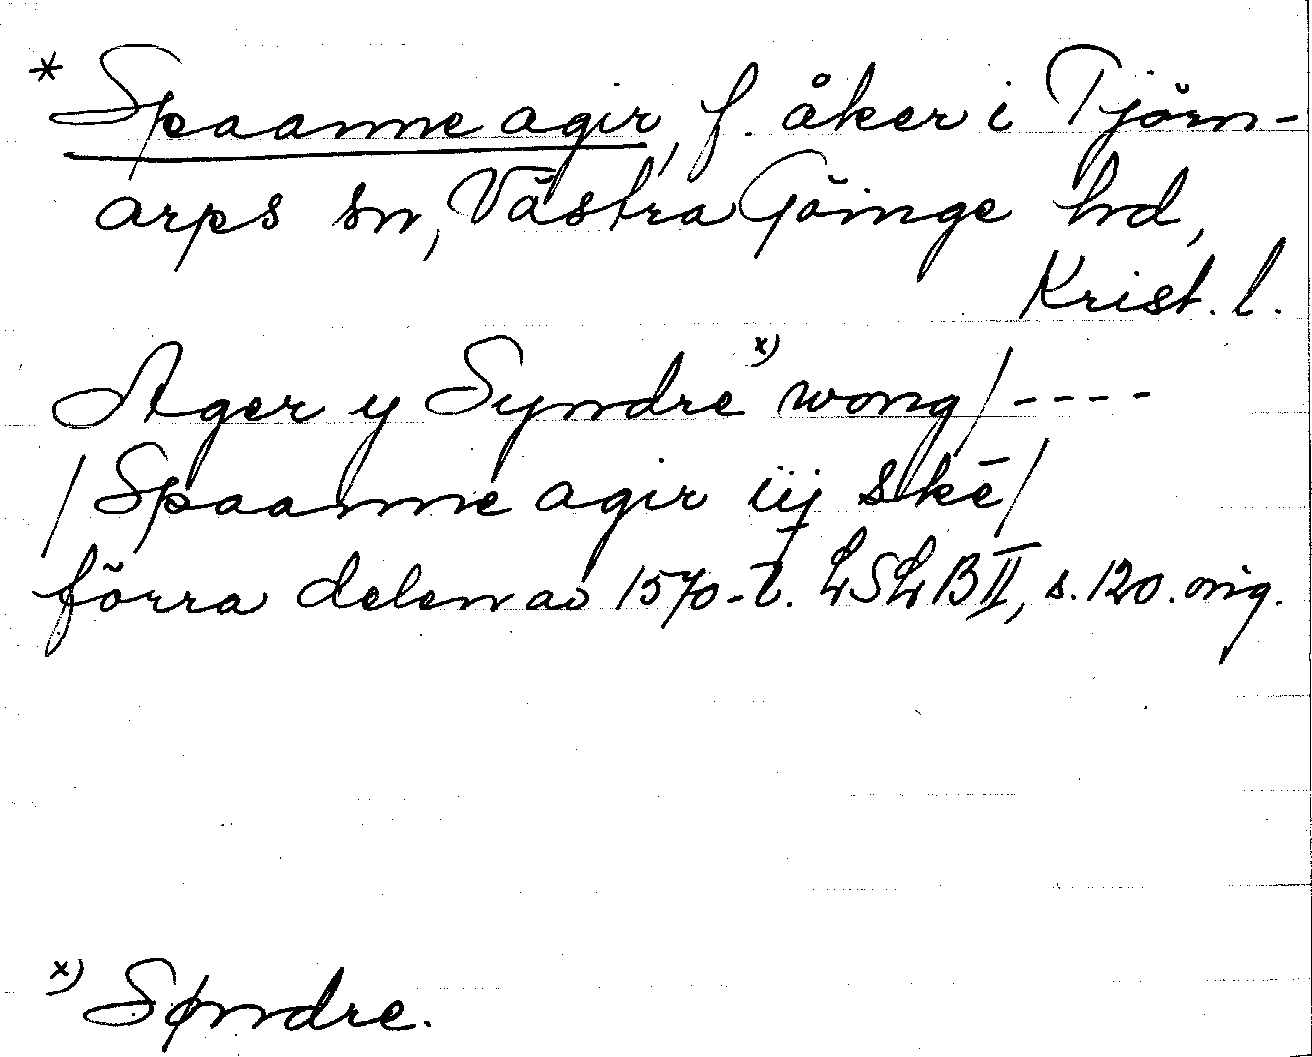 * Spaanne agir, f. åker i Tjörn-
arps sn, Västra Göinge hd,
Krist. l.
Ager y Syndre x) wong / ----
/ Spaanne agir iij skē /
förra delen av 1570-t. LSLB II, s. 120. orig.
x) Søndre.